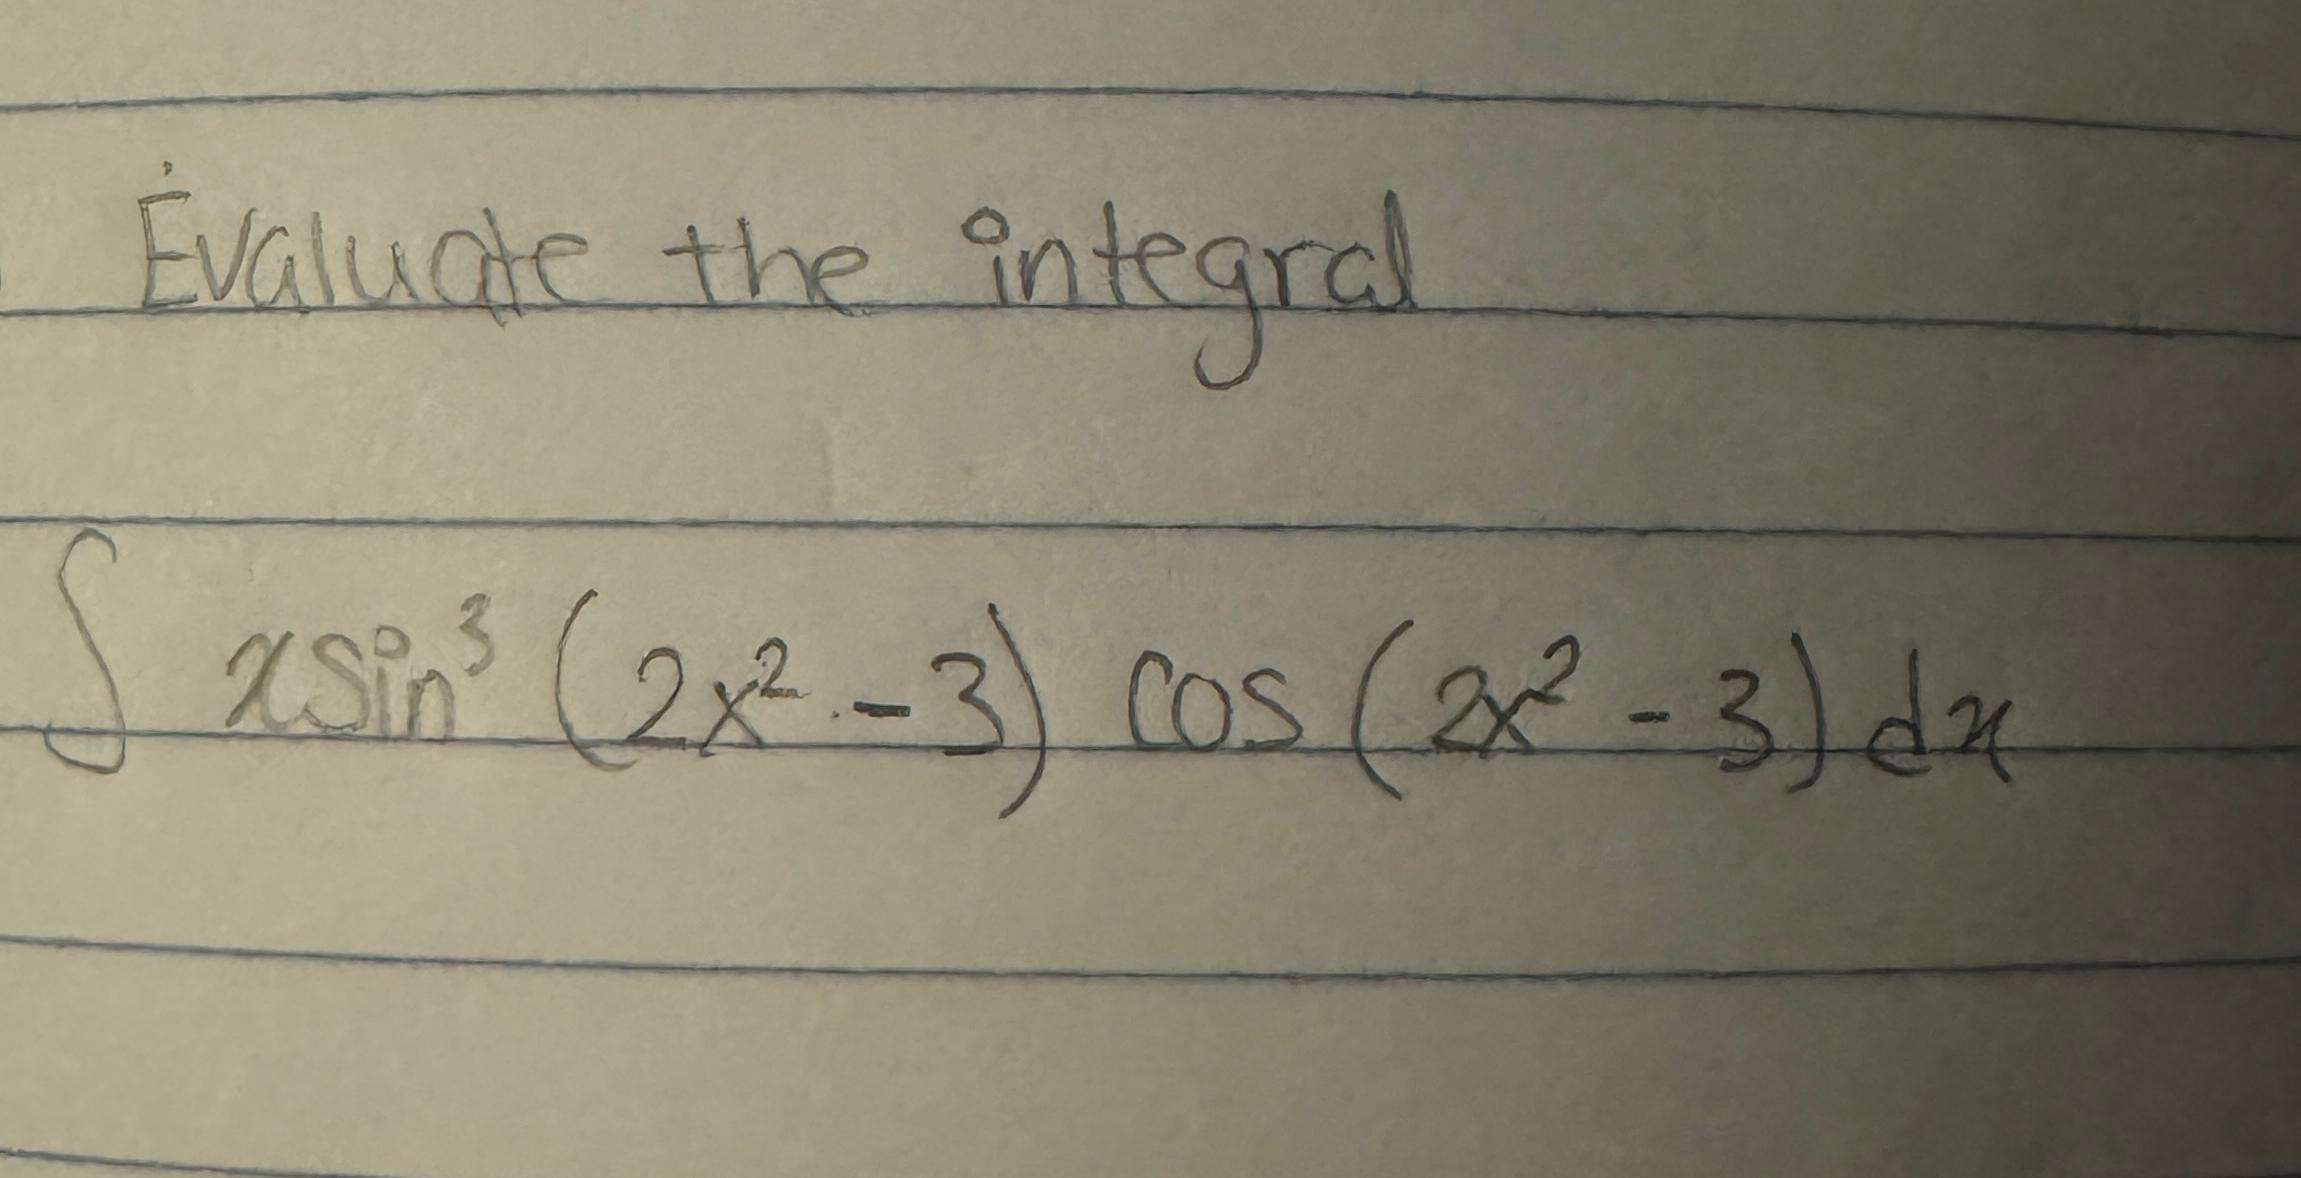 Evaluate the integral
∫ x sin³ (2x² - 3) cos (2x² - 3) dx